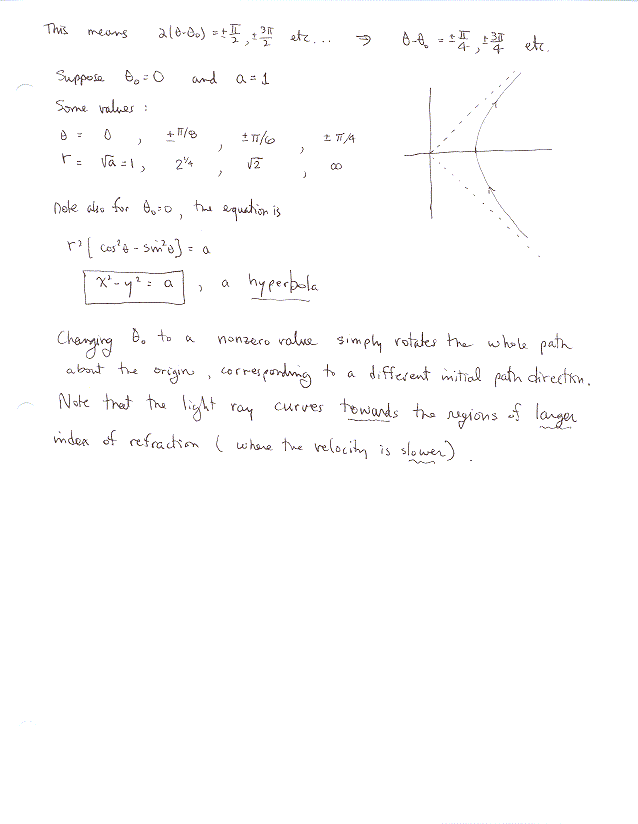 This means 2(θ-θ₀) = ±π/2, ±3π/2 etc... ⇒ θ-θ₀ = ±π/4, ±3π/4 etc.
Suppose θ₀=0 and a=1
Some values :
θ = 0 , ±π/8 , ±π/6 , ±π/4
r = √a =1, 2^1/4 , √2 , ∞
Note also for θ₀=0, the equation is
r²[cos²θ - sin²θ] = a
x² - y² = a , a hyperbola
Changing θ₀ to a nonzero value simply rotates the whole path
about the origin, corresponding to a different initial path direction.
Note that the light ray curves towards the regions of larger
index of refraction (where the velocity is slower).